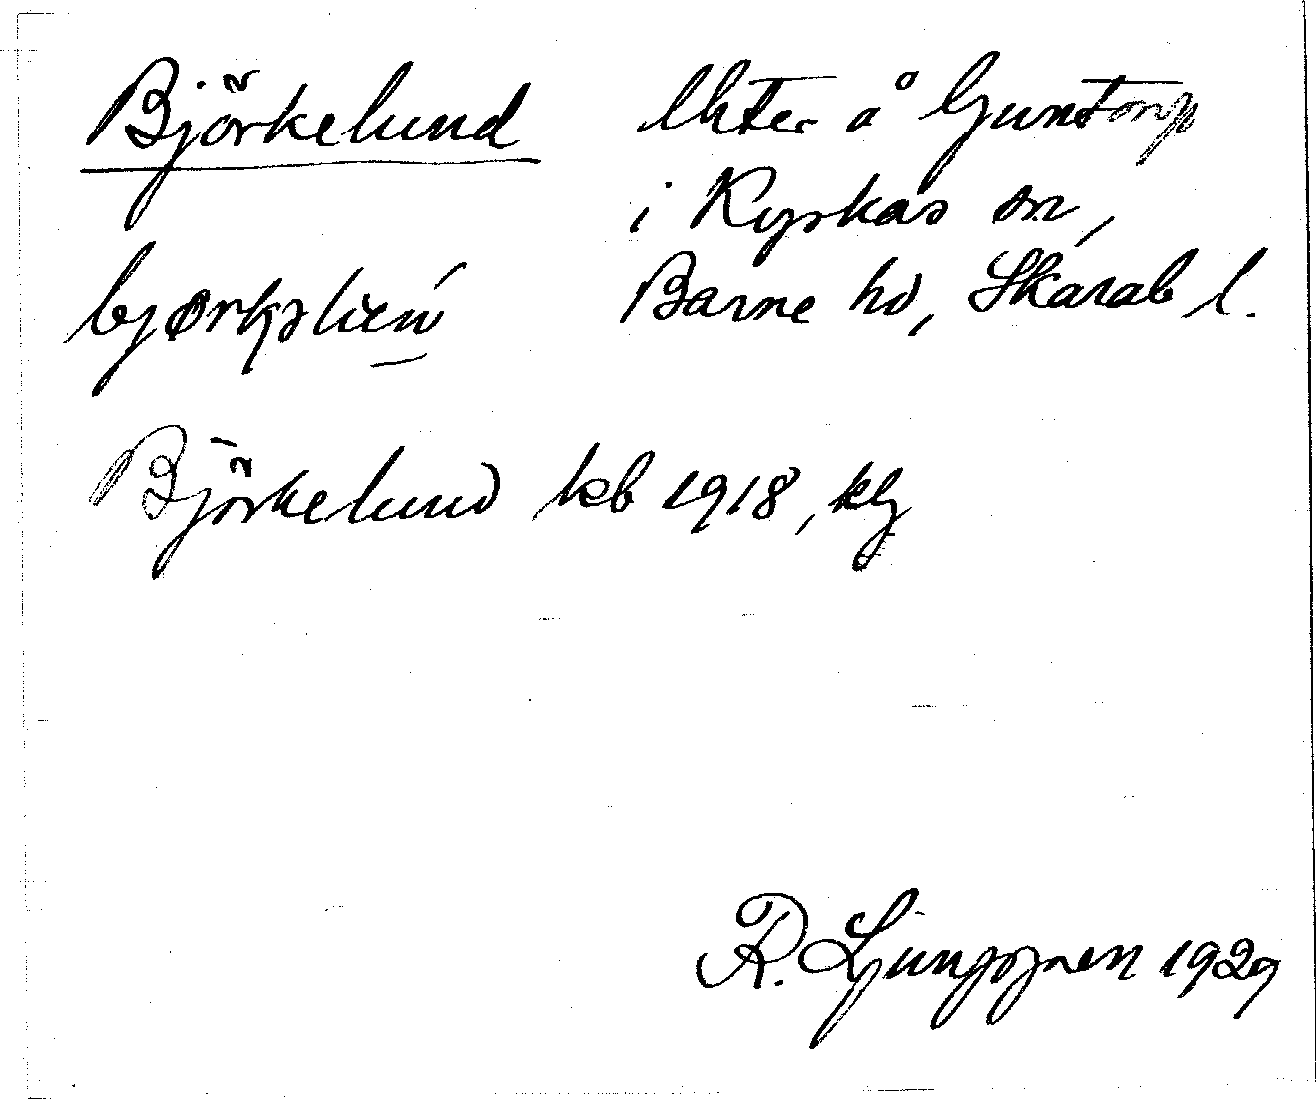 Björkelund
lht er å Guntorp
i Kyrkås sn,
Barne hd, Skarab l.
Björkelund kb 1918, klg
R. Ljunggren 1929